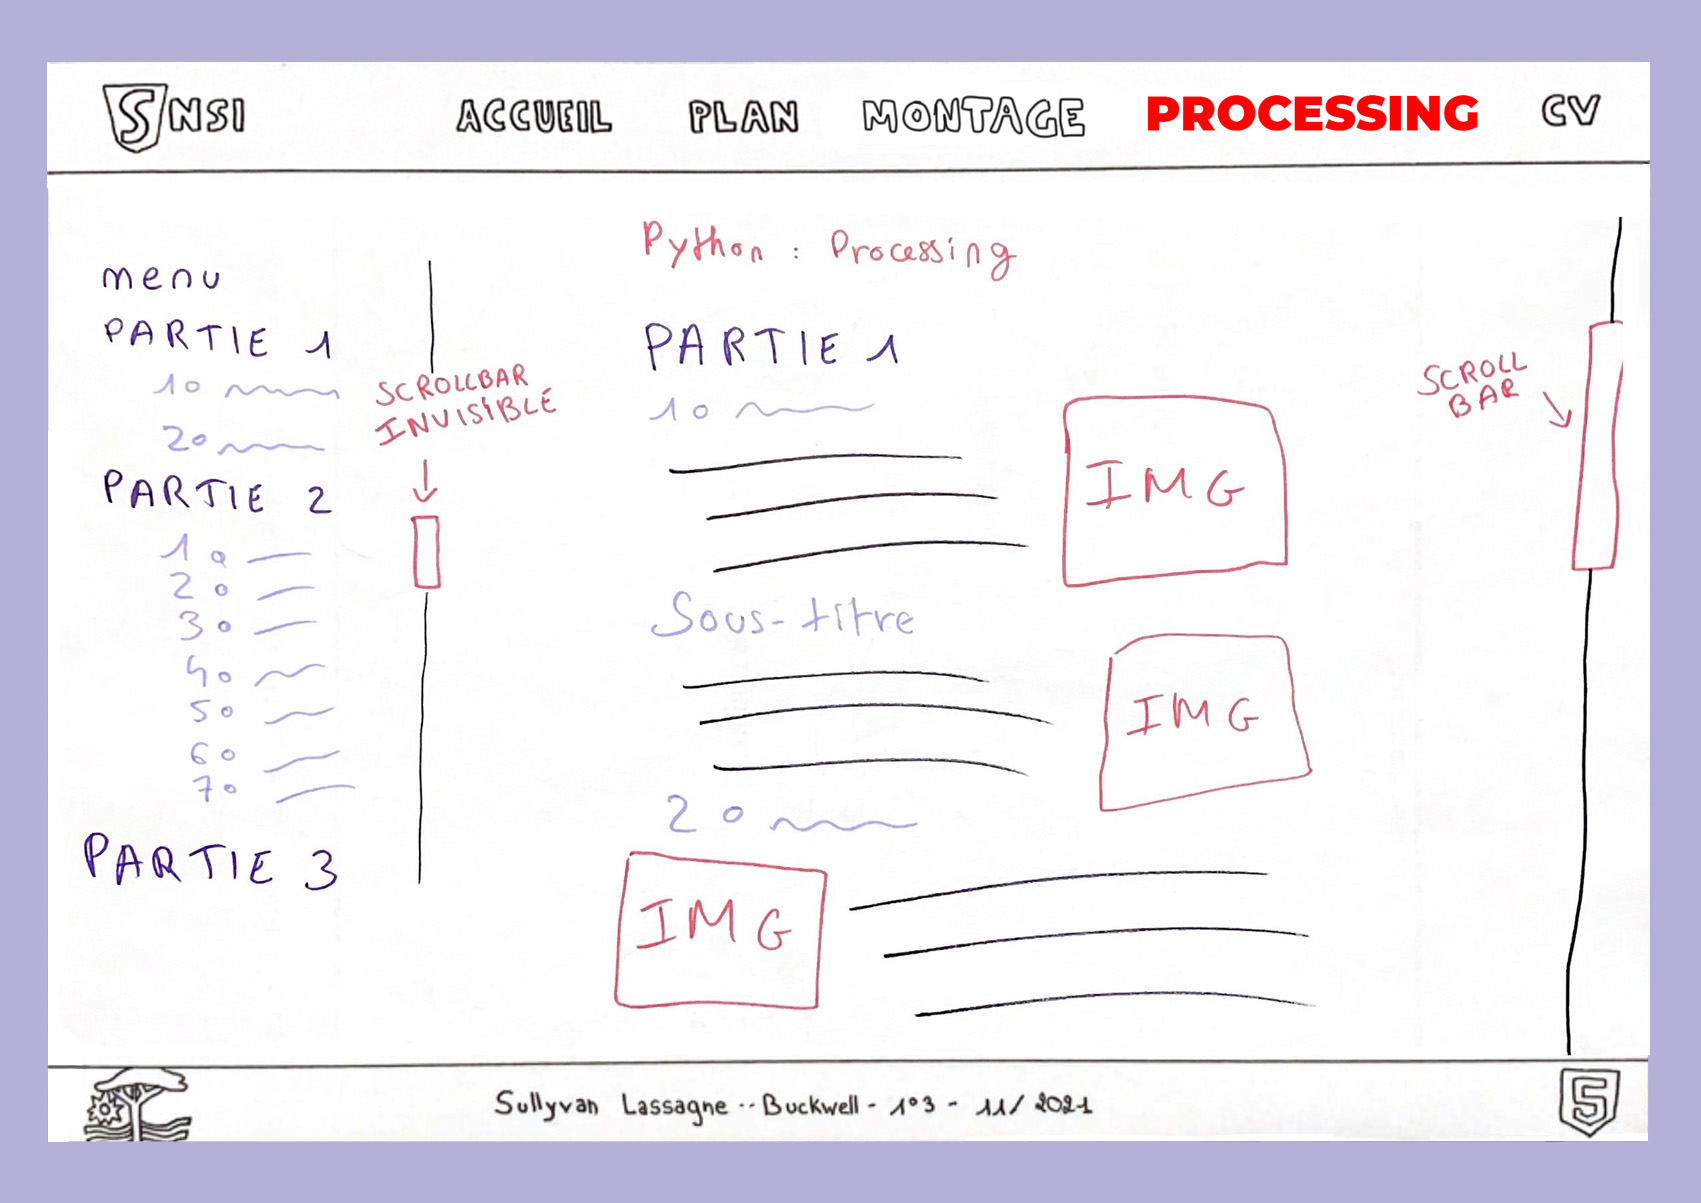 SNSI ACCUEIL PLAN MONTAGE PROCESSING CV
menu
PARTIE 1
1o
2o
PARTIE 2
1o
2o
3o
4o
5o
6o
7o
PARTIE 3
SCROLLBAR
INVISIBLE
Python : Processing
PARTIE 1
1o
IMG
Sous-titre
IMG
2o
IMG
SCROLL
BAR
Sullyvan Lassagne--Buckwell - 1°3 - 11/2021
5